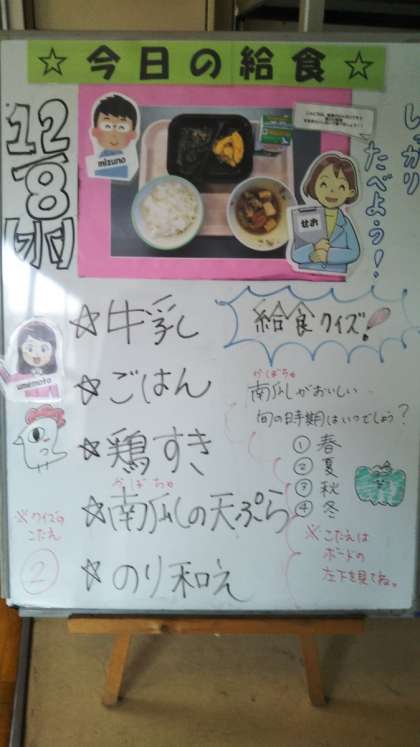 ☆ 今日の給食 ☆
12/8(水)
mizuno
せお
しっかり
たべよう!
☆牛乳
給食クイズ!
umemoto
☆ごはん
かぼちゃ
南瓜がおいしい
旬の時期はいつでしょう?
☆鶏すき
① 春
② 夏
③ 秋
④ 冬
かぼちゃ
☆南瓜の天ぷら
※クイズの
こたえ
②
※こたえは
ボードの
左下を見てね。
☆のり和え